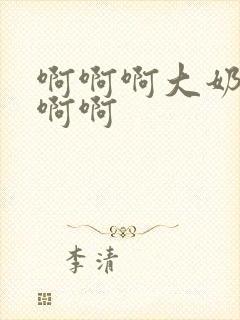 啊啊啊大奶
啊啊
李清